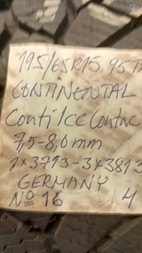 195/65R15.95T
CONTINENTAL
Conti Ice Contac
7,5-8,0mm
1x3713-3x3813
GERMANY
№16 4